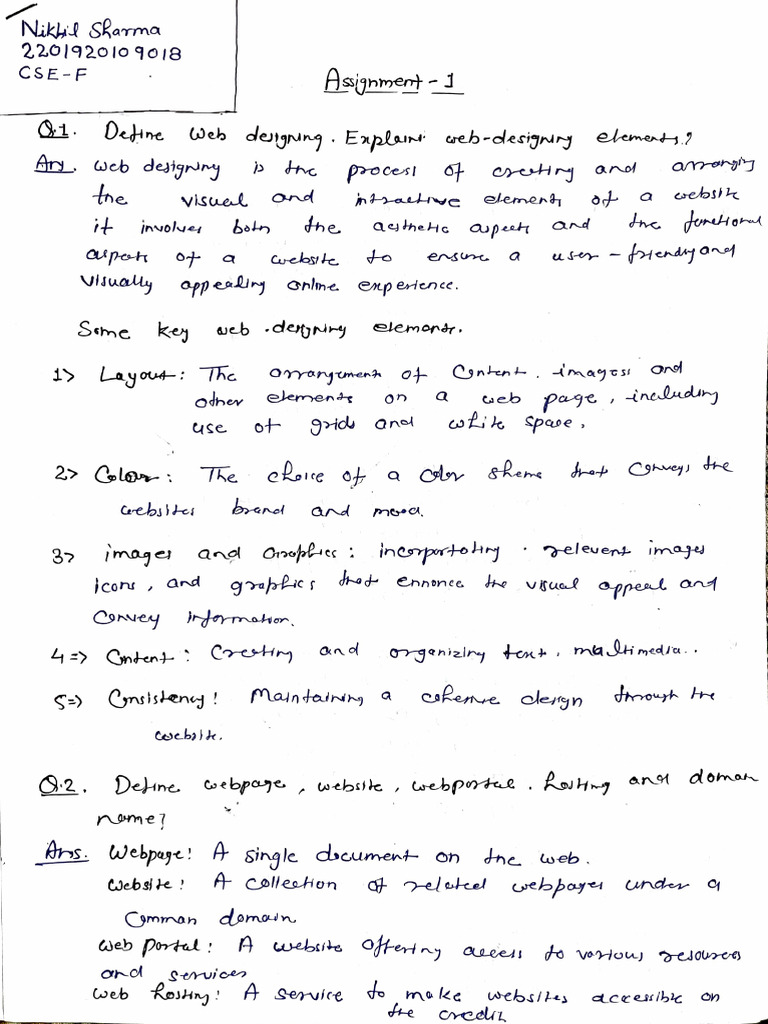 Nikhil Sharma
2201920109018
CSE-F
Assignment-1
Q.1. Define web designing. Explain web-designing elements?
Ans. Web designing is the process of creating and arranging
the visual and intractive elements of a website
it involves both the aesthetic aspects and the functional
aspects of a website to ensure a user-friendly and
visually appealing online experience.
Some key web designing elements.
1> Layout: The arrangement of content. images and
other elements on a web page, including
use of grids and white space.
2> Colour: The choice of a color sheme that conveys the
websites brand and mood.
3> images and Graphics: incorportating relevent images
icons, and graphics that ennonce the visual appeal and
convey information.
4=> Content: Creating and organizing text, multimedia..
5=> Consistency! Maintaining a cohesive design through the
website.
Q.2. Define webpage, website, webportal. hosting and doman
name?
Ans. Webpage! A single document on the web.
Website! A collection of related webpages under a
Common domain
Web Portal! A website offering access to various resources
and services
Web hosting! A service to make websites accessible on
the